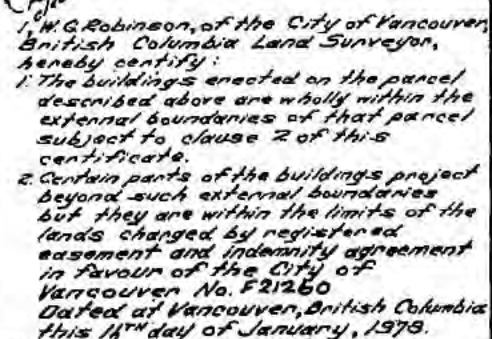 I, W. G. Robinson, of the City of Vancouver,
British Columbia Land Surveyor,
hereby certify :
1. The buildings erected on the parcel
described above are wholly within the
external boundaries of that parcel
subject to clause 2 of this
certificate.
2. Certain parts of the buildings project
beyond such external boundaries
but they are within the limits of the
lands charged by registered
easement and indemnity agreement
in favour of the City of
Vancouver No. F21260
Dated at Vancouver, British Columbia
this 16TH day of January, 1979.